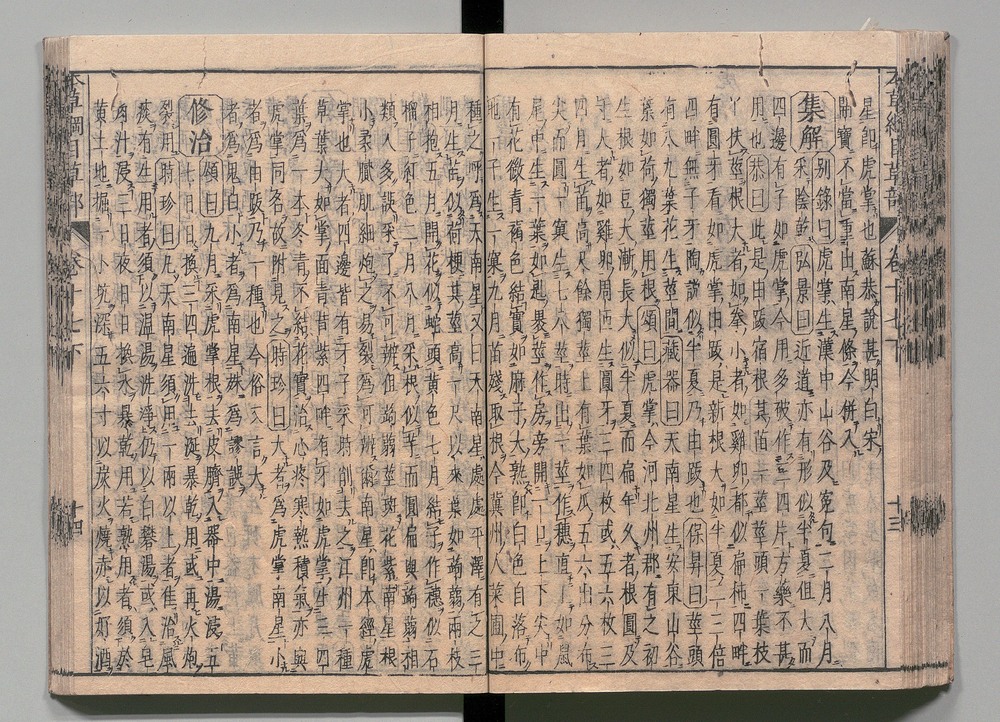 星卽虎掌也蘇恭說甚明白宋
開寶不當重出南星條今併入
集解 别錄曰虎掌生漢中山谷及寃句二月八月
采陰乾弘景曰近道亦有形似半夏但大而
四邊有子如虎掌今用多破作三四片方藥不甚
用也恭曰此是由跋宿根其苗一莖莖頭一葉枝
丫扶莖根大者如拳小者如雞卵都似扁柿四畔
有圓牙看如虎掌由跋是新根大如半夏二三倍
四畔無子牙陶說似半夏乃由跋也保昇曰莖頭
有八九葉花生莖間藏器曰天南星生安東山谷
葉如荷獨莖用根頌曰虎掌今河北州郡有之初
生根如豆大漸長大似半夏而扁年久者根圓及
寸大者如雞卵周匝生圓牙三四枚或五六枚三
四月生苗高尺餘獨莖上有葉如爪五六出分布
尖而圓一窠生七八莖時出一莖作穗直上如鼠
尾中生一葉如匙裹莖作房旁開一口上下尖中
有花微青褐色結實如麻子大熟卽白色自落布
地一子生一窠九月苗殘取根今冀州人菜圃中
種之呼爲天南星又曰天南星處處平澤有之三
月生苗似荷梗其莖高一尺以來葉如蒟蒻兩枝
相抱五月開花似蛇頭黃色七月結子作穗似石
榴子紅色二月八月采根似芋而圓扁與蒟蒻相
類人多誤采了不可辨但蒟蒻莖斑花紫南星根
小柔膩肌細炮之易裂爲可辨爾南星卽本經虎
掌也大者四邊皆有牙子采時削去之江州一種
草葉大如掌面青背紫四畔有牙如虎掌生三四
葉爲一本冬青不結花實治心疼寒熱積氣亦與
虎掌同名故附見之時珍曰大者爲虎掌南星小
者爲由跋乃一種也今俗又言大
者爲鬼臼小者爲南星殊爲謬誤
修治 頌曰九月采虎掌根去皮臍入器中湯浸五
七日日換三四遍洗去涎暴乾用或再火炮
裂用時珍曰凡天南星須用一兩以上者佳治風
痰有生用者須以温湯洗淨仍以白礬湯或入皂
角汁浸三日夜日日換水暴乾用若熟用者須於
黃土地掘一小坑深五六寸以炭火燒赤以好酒
本草綱目草部 卷十七下 十三
本草綱目草部 卷十七下 十四